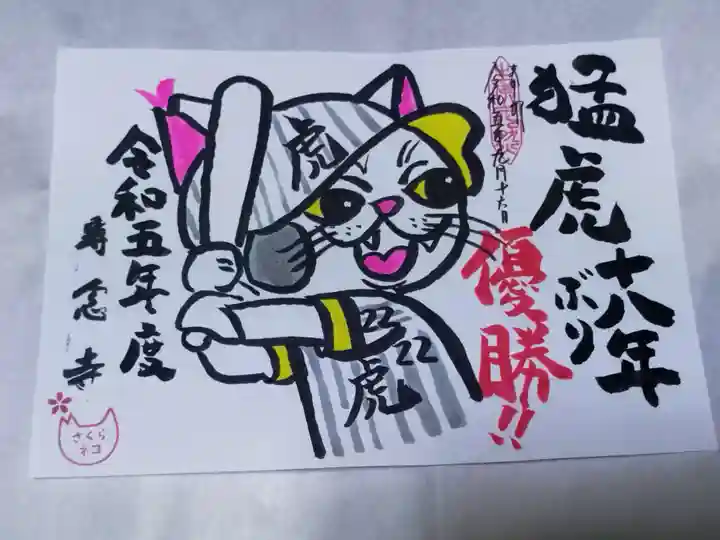 猛虎十八年
ぶり
優勝!!
令和五年九月十六日
虎
22
22
虎
令和五年度
壽念寺
さくら
ネコ